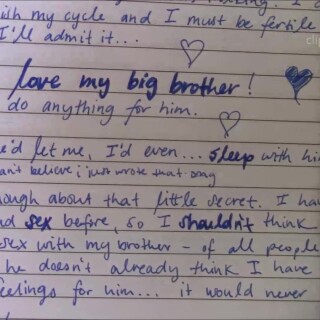 with my cycle and I must be fertile
I'll admit it...
love my big brother!
do anything for him.
he'd let me, I'd even... sleep with
can't believe i just wrote that
about that little secret. I
sex before, so I shouldn't think
sex with my brother - of all people
he doesn't already think I have
feelings for him... it would never